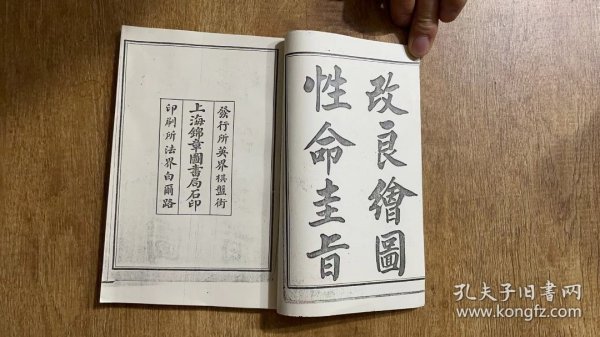 改良繪圖
性命圭旨
發行所英界棋盤街
上海錦章圖書局石印
印刷所法界白爾路
孔夫子旧書网
www.kongfz.com